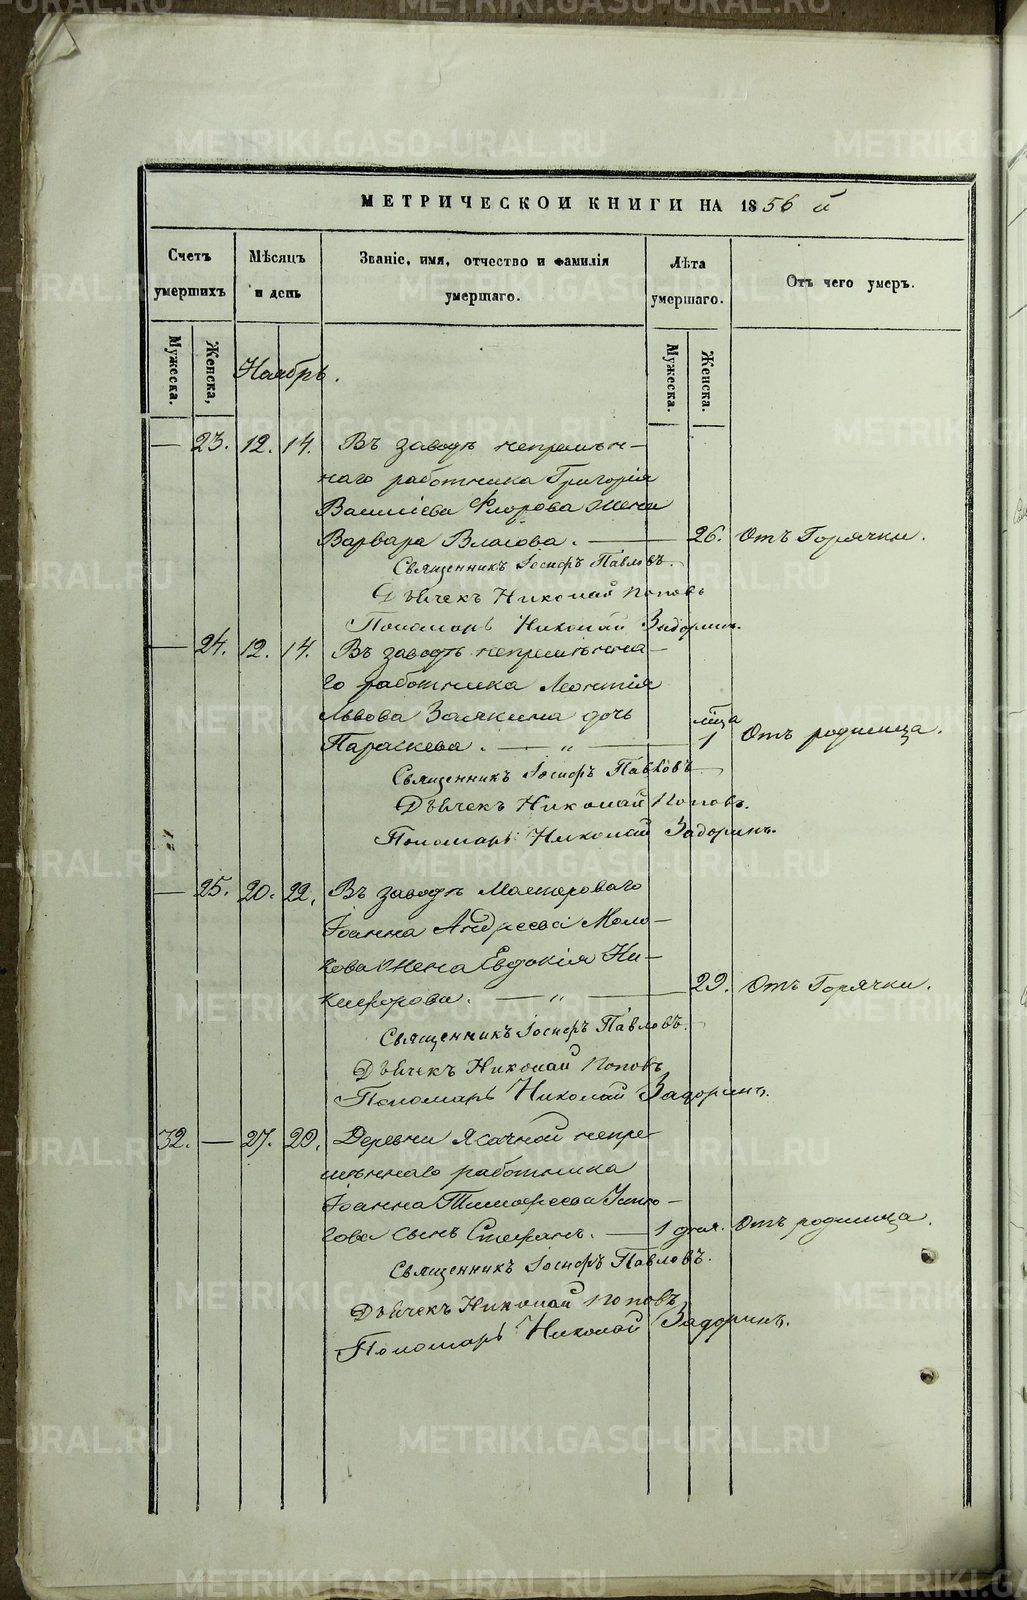 МЕТРИЧЕСКОИ КНИГИ НА 1856 й
Счетъ умершихъ
Мѣсяцъ и день
Званіе, имя, отчество и фамилія умершаго.
Лѣта умершаго.
Отъ чего умеръ.
Мужеска.
Женска,
Ноябрь.
Мужеска.
Женска.
— 23. 12. 14. Въ заводѣ непремѣн-
наго работника Григорія
Василіева Флорова жена
Варвара Власова. — 26. Отъ Горячки.
Священникъ Іосифъ Павловъ.
Дьячекъ Николай Поповъ
Пономарь Николай Задоринъ.
— 24. 12. 14. Въ заводѣ непремѣнна-
го работника Леонтія
Львова Заякина дочь
Параскева. — „ — мца 1 Отъ родимца.
Священникъ Іосифъ Павловъ
Дьячекъ Николай Поповъ.
Пономарь Николай Задоринъ.
— 25. 20. 22. Въ заводѣ Мастероваго
Іоанна Андреева Моло-
кова жена Евдокія Ни-
кифорова. — „ — 29. Отъ Горячки.
Священникъ Іосифъ Павловъ.
Дьячекъ Николай Поповъ
Пономарь Николай Задоринъ.
32. — 27. 29. Деревни Ясачной непре-
мѣннаго работника
Іоанна Тимофеева
сынъ Стефанъ. — 1 дня. Отъ родимца.
Священникъ Іосифъ Павловъ.
Дьячекъ Николай Поповъ
Пономарь Николай Задоринъ.
METRIKI.GASO-URAL.RU